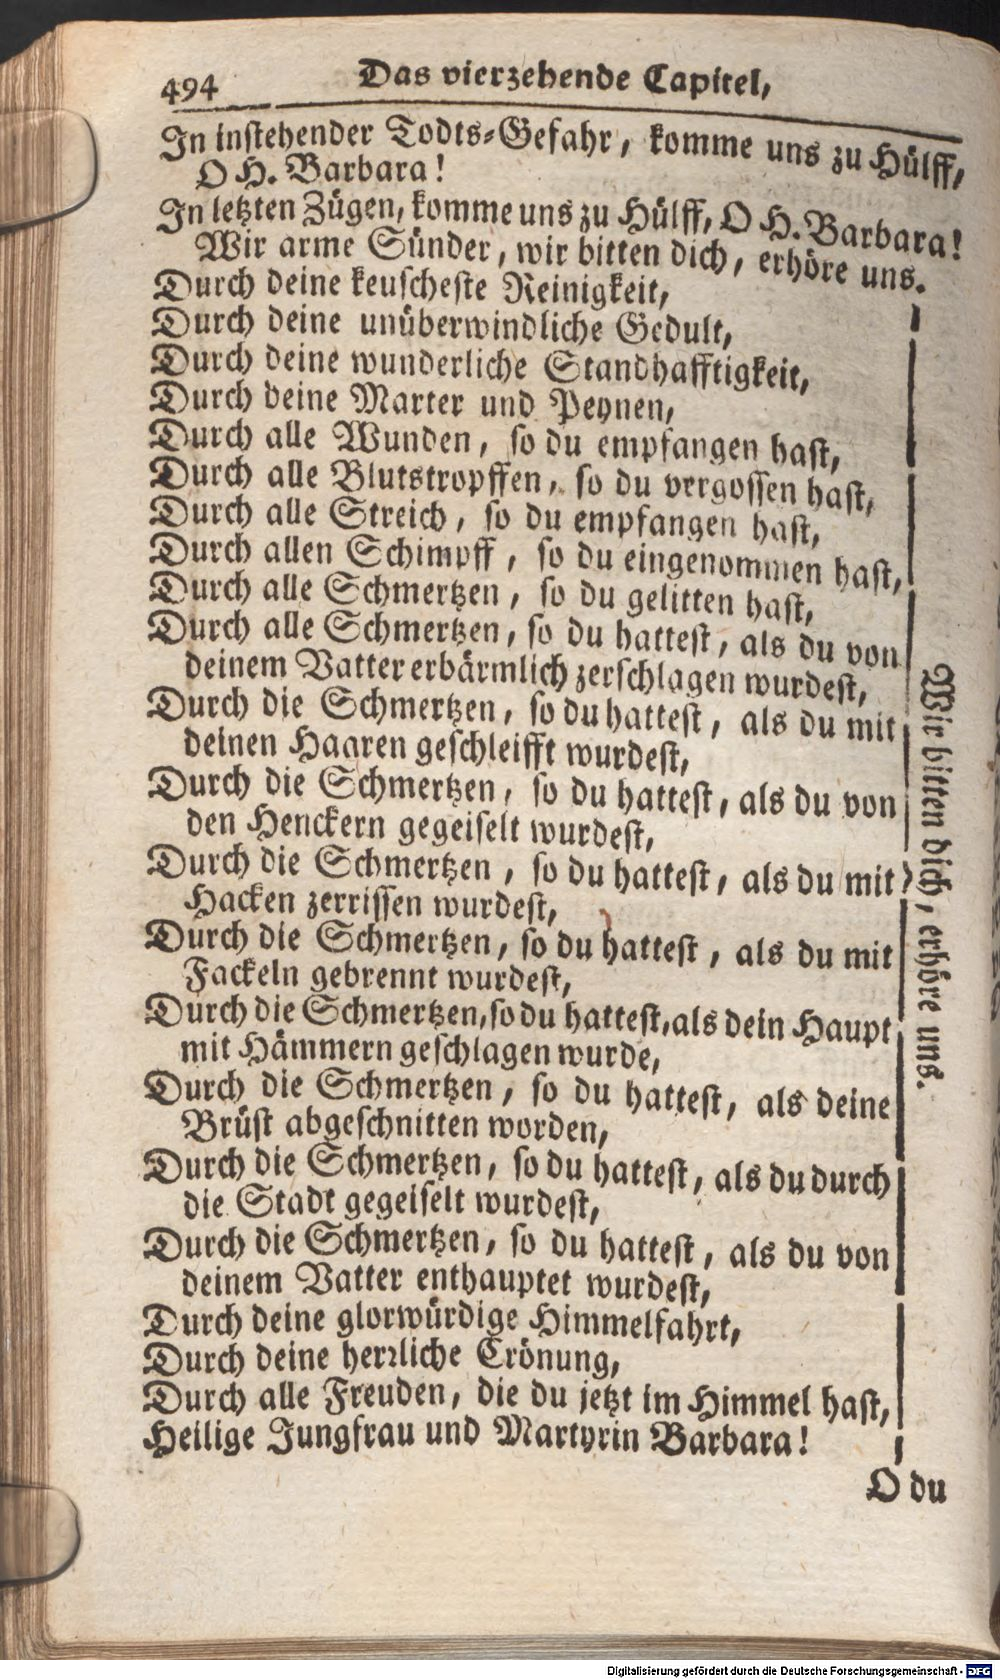 494 Das vierzehende Capitel,
In instehender Todts-Gefahr, komme uns zu Hülff,
O H. Barbara!
In letzten Zügen, komme uns zu Hülff, O H. Barbara!
Wir arme Sünder, wir bitten dich, erhöre uns.
Durch deine keuscheste Reinigkeit,
Durch deine unüberwindliche Gedult,
Durch deine wunderliche Standhafftigkeit,
Durch deine Marter und Peynen,
Durch alle Wunden, so du empfangen hast,
Durch alle Blutstropffen, so du vergossen hast,
Durch alle Streich, so du empfangen hast,
Durch allen Schimpff, so du eingenommen hast,
Durch alle Schmertzen, so du gelitten hast,
Durch alle Schmertzen, so du hattest, als du von
deinem Vatter erbärmlich zerschlagen wurdest,
Durch die Schmertzen, so du hattest, als du mit
deinen Haaren geschleifft wurdest,
Durch die Schmertzen, so du hattest, als du von
den Henckern gegeiselt wurdest,
Durch die Schmertzen, so du hattest, als du mit
Hacken zerrissen wurdest,
Durch die Schmertzen, so du hattest, als du mit
Fackeln gebrennt wurdest,
Durch die Schmertzen, so du hattest, als dein Haupt
mit Hämmern geschlagen wurde,
Durch die Schmertzen, so du hattest, als deine
Brüst abgeschnitten worden,
Durch die Schmertzen, so du hattest, als du durch
die Stadt gegeiselt wurdest,
Durch die Schmertzen, so du hattest, als du von
deinem Vatter enthauptet wurdest,
Durch deine glorwürdige Himmelfahrt,
Durch deine herrliche Crönung,
Durch alle Freuden, die du jetzt im Himmel hast,
Wir bitten dich, erhöre uns.
Heilige Jungfrau und Martyrin Barbara!
O du
Digitalisierung gefördert durch die Deutsche Forschungsgemeinschaft - DFG